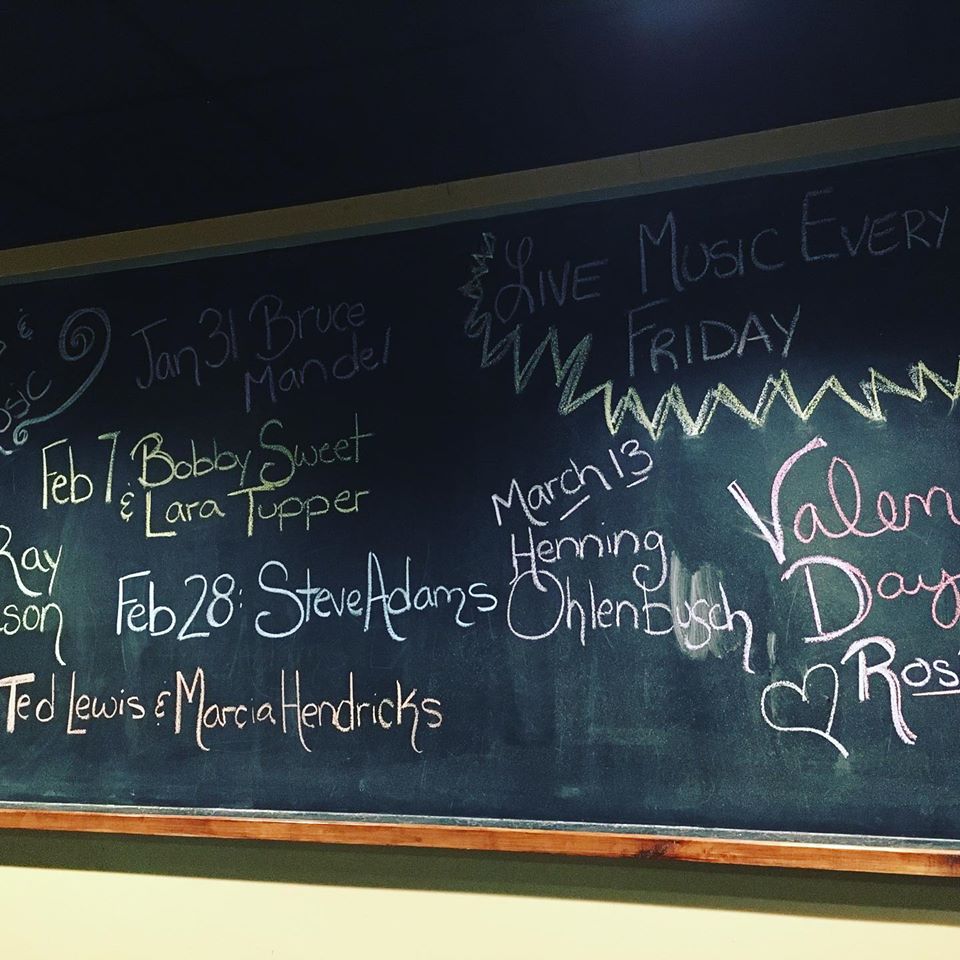 &
Jan 31 Bruce
Mandel
Feb 7 Bobby Sweet
& Lara Tupper
Ray
son
Feb 28: Steve Adams
Ted Lewis & Marcia Hendricks
Live Music Every
Friday
March 13
Henning
Ohlenbusch
Valen
Day
Ros